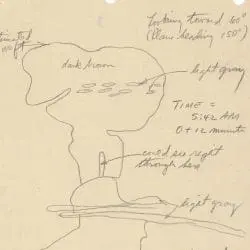 Looking toward 160°
(Plane heading 150°)
dark brown
light gray
TIME =
5:42 AM
0 + 12 minute
could see right
through here
light gray